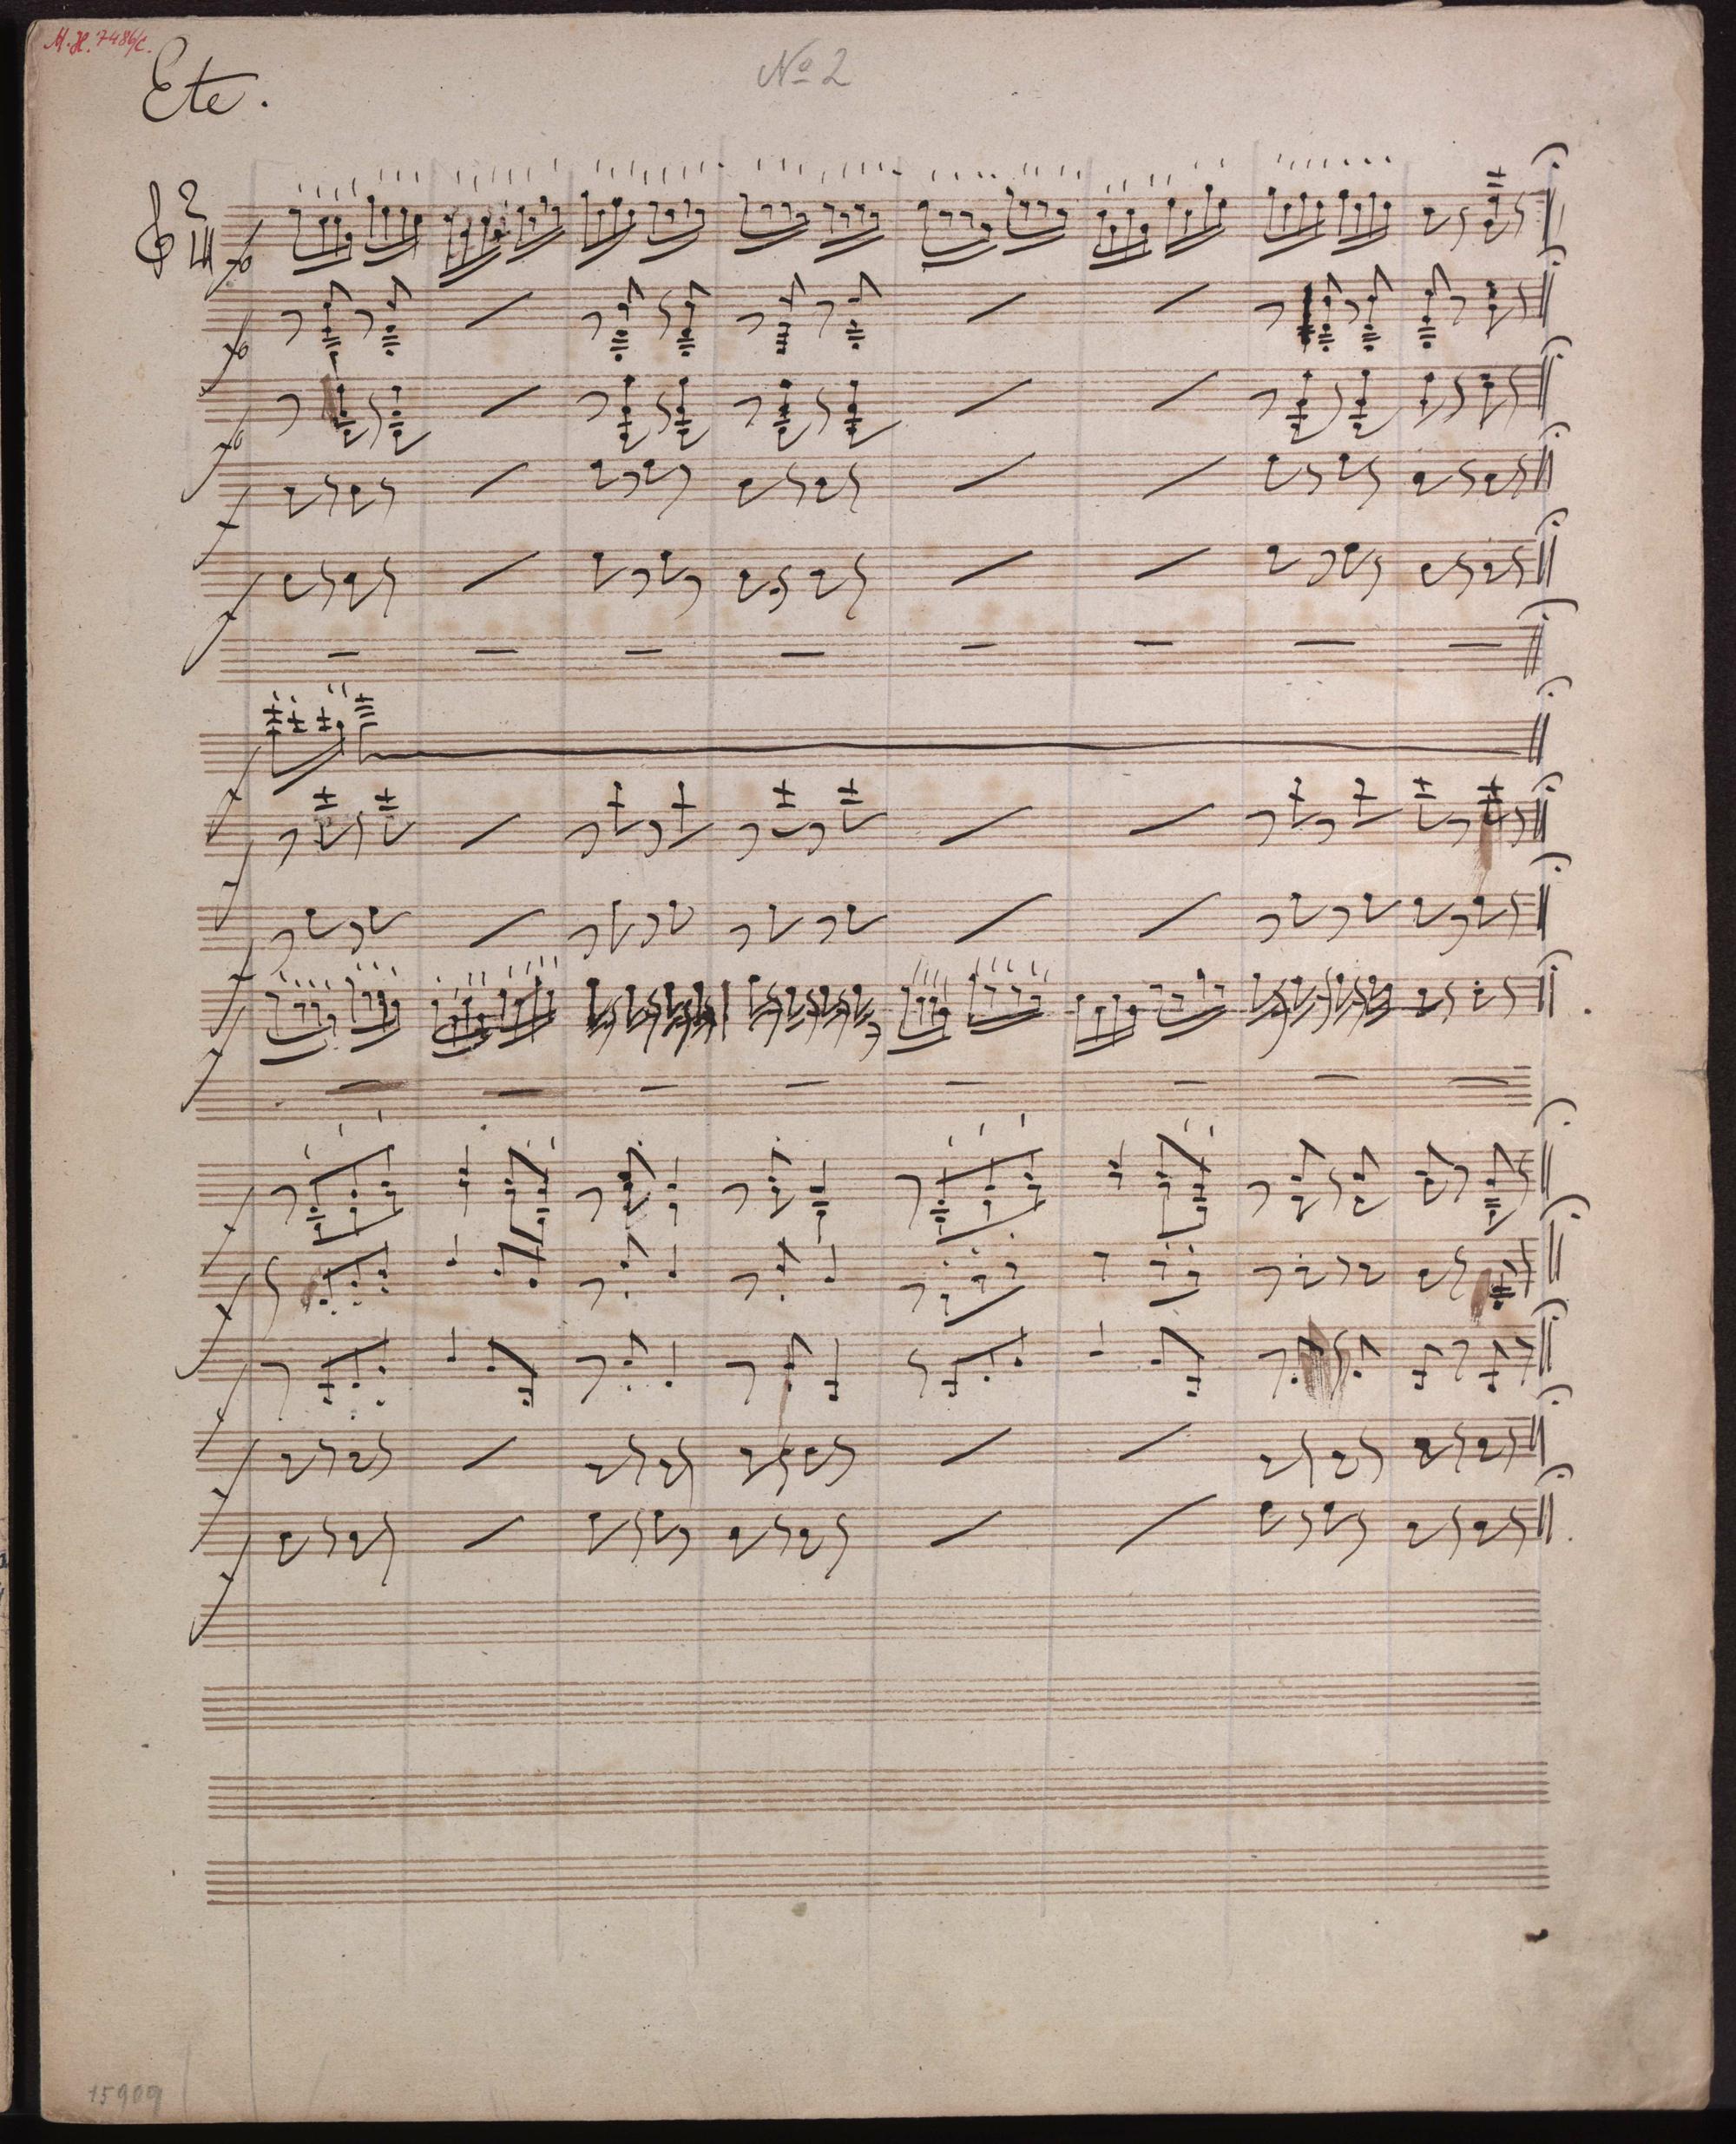 M.H. 7486/c.
Ete.
No 2
15909